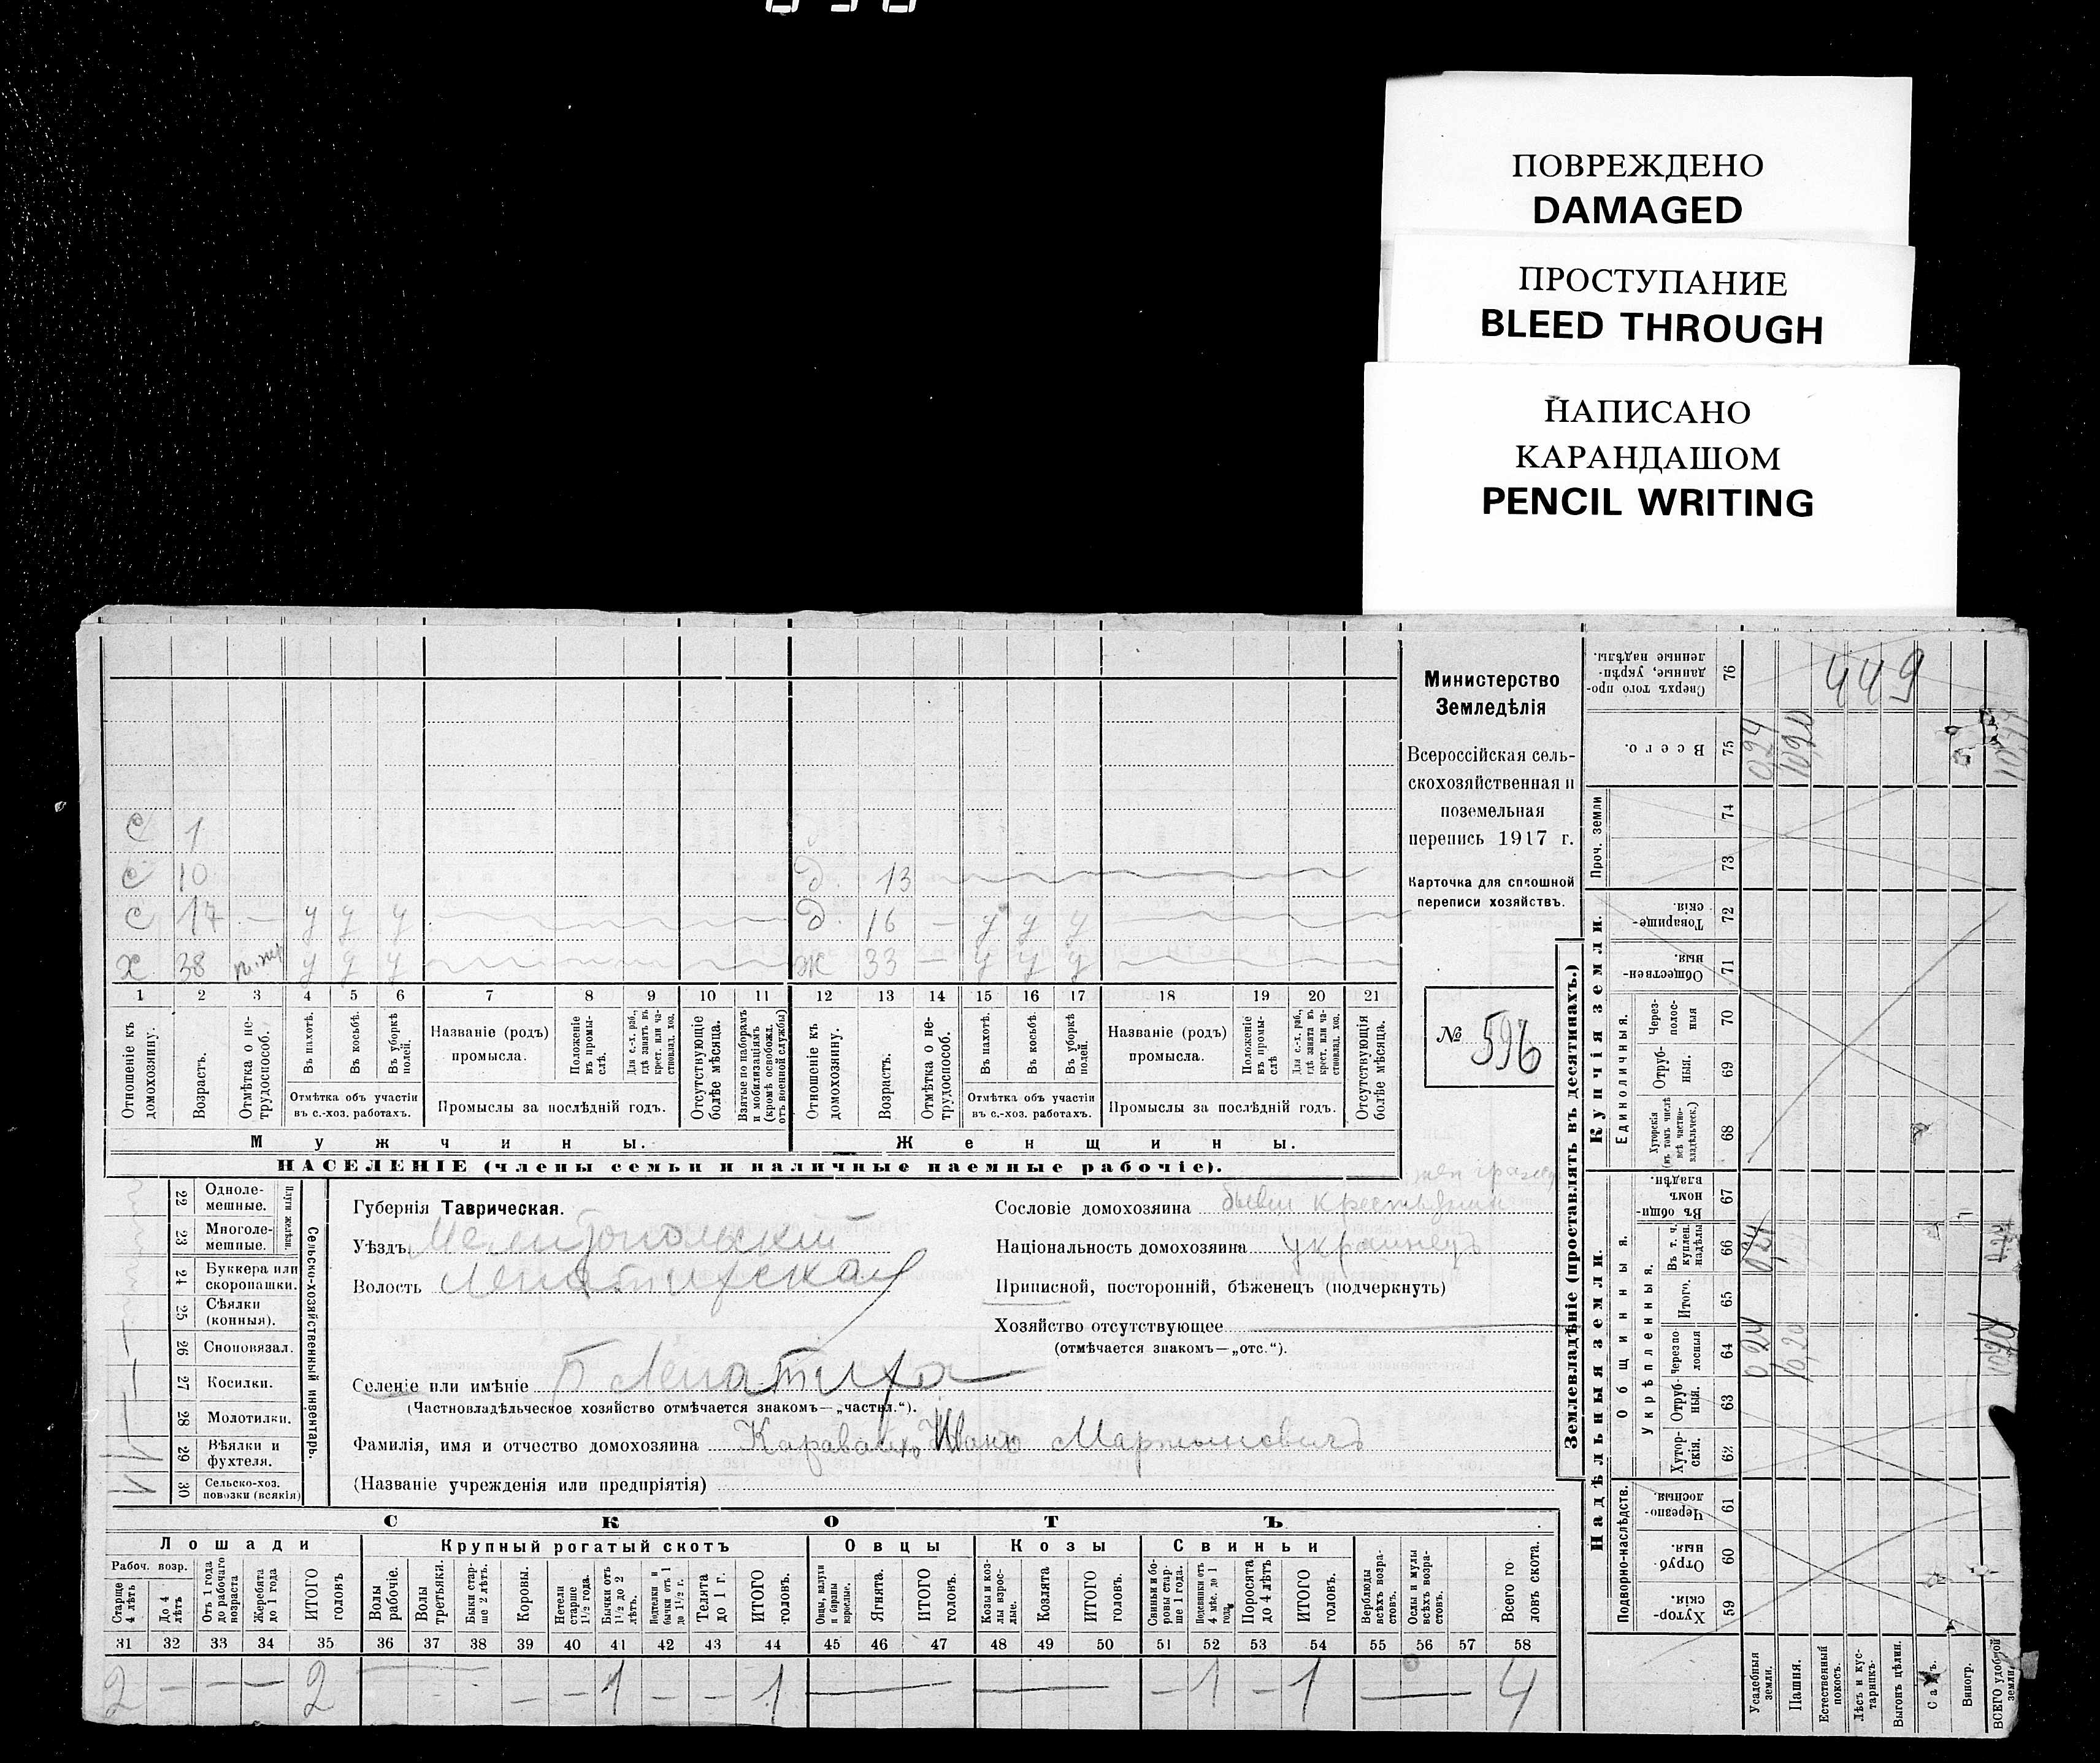 ПОВРЕЖДЕНО
DAMAGED
ПРОСТУПАНИЕ
BLEED THROUGH
НАПИСАНО
КАРАНДАШОМ
PENCIL WRITING
с 1
с 10
д. 13
с 17 — у у у
д. 16 — у у у
х 38 у у у
ж 33 — у у у
1 2 3 4 5 6 7 8 9 10 11 12 13 14 15 16 17 18 19 20 21
Отношеніе къ домохозяину.
Возрастъ.
Отмѣтка о нетрудоспособ.
Въ пахотѣ.
Въ косьбѣ.
Въ уборкѣ полей.
Отмѣтка объ участіи
въ с.-хоз. работахъ.
Названіе (родъ)
промысла.
Положеніе въ промыслѣ.
Для с.-х. раб., гдѣ занятъ въ крест. или частновлад. хоз.
Промыслы за послѣдній годъ.
Отсутствующіе болѣе мѣсяца.
Взятые по наборамъ и мобилизаціямъ (кромѣ освобожд. отъ военной службы)
Отношеніе къ домохозяину.
Возрастъ.
Отмѣтка о нетрудоспособ.
Въ пахотѣ.
Въ косьбѣ.
Въ уборкѣ полей.
Отмѣтка объ участіи
въ с.-хоз. работахъ.
Названіе (родъ)
промысла.
Положеніе въ промыслѣ.
Для с.-х. раб., гдѣ занятъ въ крест. или частновлад. хоз.
Промыслы за послѣдній годъ.
Отсутствующія болѣе мѣсяца.
Мужчины.
Женщины.
НАСЕЛЕНІЕ (члены семьи и наличные наемные рабочіе).
Министерство
Земледѣлія
Всероссійская сель-
скохозяйственная и
поземельная
перепись 1917 г.
Карточка для сплошной
переписи хозяйствъ.
№ 596
22 Одноле-
мешные.
23 Многоле-
мешные.
Плуги желѣзн.
24 Буккера или
скоропашки.
25 Сѣялки
(конныя).
26 Сноповязал.
27 Косилки.
28 Молотилки.
29 Вѣялки и
фухтеля.
30 Сельско-хоз.
повозки (всякія)
Сельско-хозяйственный инвентарь.
Губернія Таврическая.
Уѣздъ Мелитопольскій
Волость Лепатихская
Селеніе или имѣніе Б Лепатиха
(Частновладѣльческое хозяйство отмѣчается знакомъ—„частвл.“).
Фамилія, имя и отчество домохозяина Иванъ Мартыновичъ
(Названіе учрежденія или предпріятія)
Сословіе домохозяина
Національность домохозяина украинецъ
Приписной, посторонній, бѣженец (подчеркнуть)
Хозяйство отсутствующее
(отмѣчается знакомъ—„отс.“).
СКОТЪ
Лошади
Крупный рогатый скотъ
Овцы
Козы
Свиньи
Рабоч. возр.
Старше 4 лѣтъ
До 4 лѣтъ
Отъ 1 года до рабочаго возраста
Жеребята до 1 года
ИТОГО головъ
Волы рабочіе.
Волы третьяки.
Быки старше 2 лѣтъ.
Коровы.
Нетели старше 1½ года.
Бычки отъ 1½ до 2 лѣтъ.
Подтелки и бычки отъ 1 до 1½ г.
Телята до 1 г.
ИТОГО головъ.
Овцы, валухи и бараны взрослые.
Ягнята.
ИТОГО головъ.
Козы и козлы взрослые.
Козлята
ИТОГО головъ.
Свиньи и боровы старше 1 года.
Подсвинки отъ 4 мѣс. до 1 года
Поросята до 4 лѣтъ
ИТОГО головъ.
Верблюды всѣхъ возрастовъ.
Ослы и мулы всѣхъ возрастовъ.
Всего головъ скота.
31 32 33 34 35 36 37 38 39 40 41 42 43 44 45 46 47 48 49 50 51 52 53 54 55 56 57 58
2 — — — 2 — — — 1 — — 1 — — — 1 — 1 — 4
Землевладѣніе (проставлять въ десятинахъ.)
Надѣльныя земли.
Купчія земли.
Проч. земли
Подворно-наслѣдств.
Общинныя.
Укрѣпленныя.
Единоличныя.
76 Сверхъ того проданные, укрѣпленные надѣлы.
75 Всего.
74
73
72 Товарищескія.
71 Общественныя.
70 Черезполосныя
69 Отрубныя.
68 Хуторскія (въ томъ числѣ всѣ частновладѣльческ.)
67 Въ общинномъ владѣн.
66 Въ т. ч. куплен. надѣлы
65 Итого.
64 Черезполосныя
63 Отрубныя.
62 Хуторскія.
61 Черезполосныя.
60 Отрубныя.
59 Хуторскія.
Усадебныя земли.
Пашня.
Естественный покосъ.
Лѣсъ и кустарникъ.
Выгонъ цѣлин.
Садъ.
Виногр.
ВСЕГО удобной земли.
449
0,24
10,20
0,24
10,20